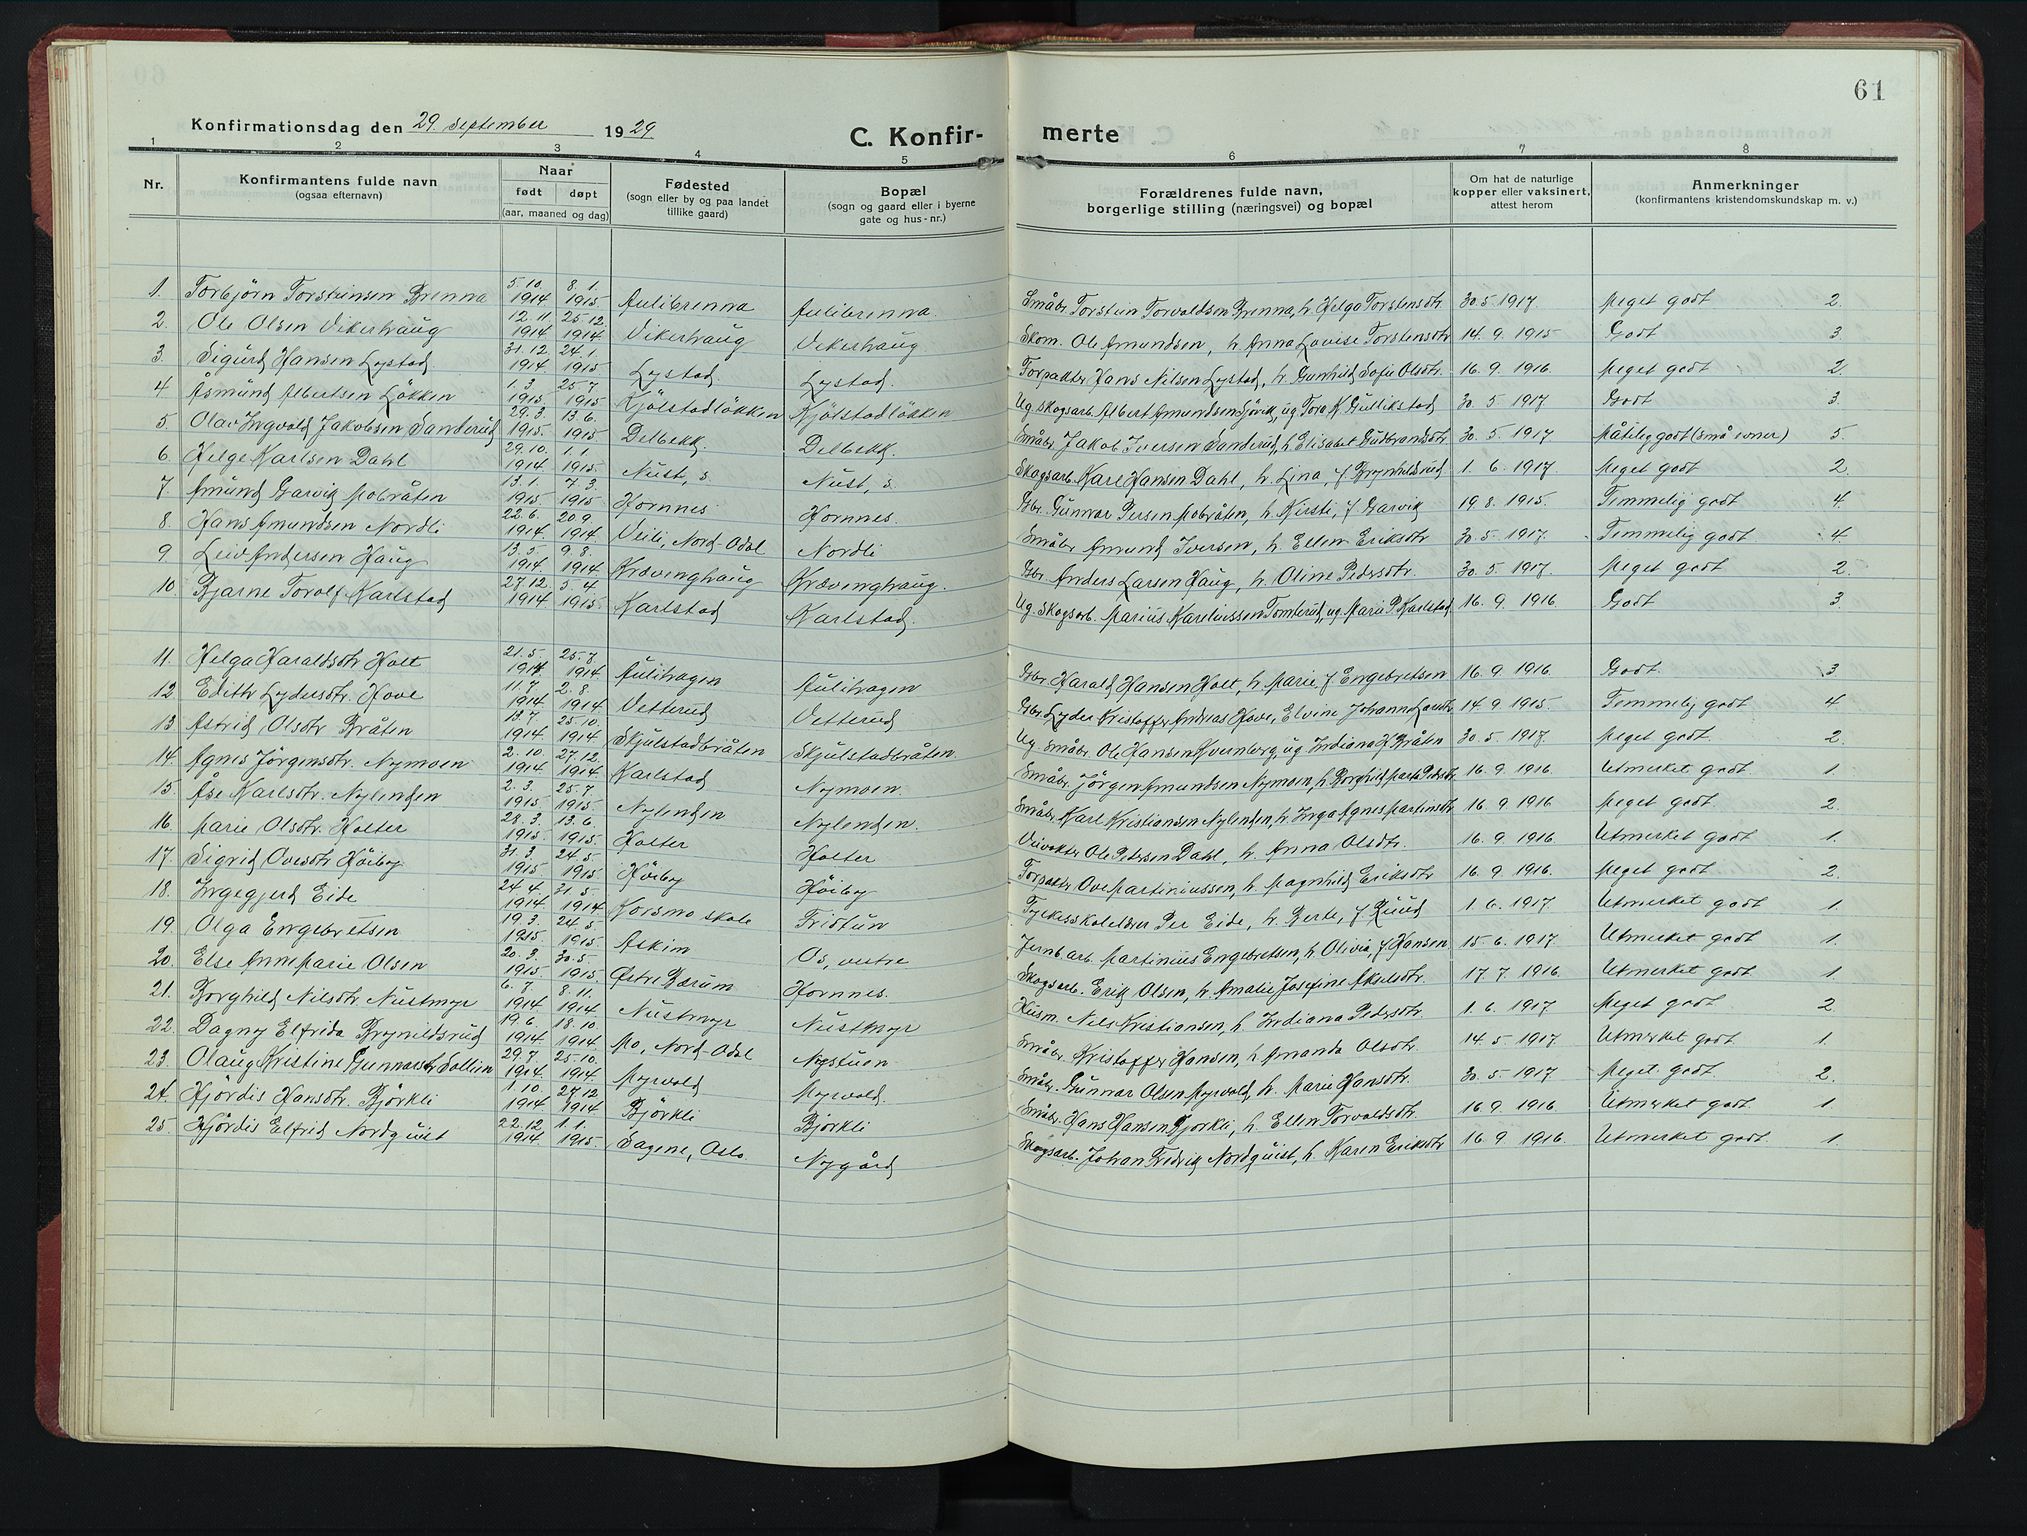 61
Konfirmationsdag den 29 september 1929
C. Konfir- merte
1 2 3 4 5 6 7 8
Nr. Konfirmantens fulde navn (ogsaa efternavn) Naar født døpt (aar, maaned og dag) Fødested (sogn eller by og paa landet tillike gaard) Bopæl (sogn og gaard eller i byerne gate og hus-nr.) Forældrenes fulde navn, borgerlige stilling (næringsvei) og bopæl Om hat de naturlige kopper eller vaksinert, attest herom Anmerkninger (konfirmantens kristendomskundskap m. v.)
1. Torbjørn Torsteinsen Brenna 5.10. 1914 8.1. 1915 Aulibrenna Aulibrenna. Småbr. Torstein Torvaldsen Brenna, h. Helga Torstensdtr. 30.5.1917. Meget godt 2.
2. Ole Olsen Vikerhaug 12.11. 1914 25.12. 1914 Vikerhaug Vikerhaug Skom. Ole Amundsen, h. Anna Lovise Torstensdtr 14.9.1915 Godt 3.
3. Sigurd Hansen Lystad. 31.12. 1914 24.1. 1915 Lystad. Lystad. Forpakter Hans Nilsen Lystad, h. Gunhild Sofie Olsdtr. 16.9.1916. Meget godt 2.
4. Åsmund Albertsen Løkken 1.3. 1915 25.7. 1915 Kjølstadløkken Kjølstadløkken Ug. skogsarb. Albert Amundsen Sjøvik, ug. Tora K. Gullikstad 30.5.1917. Godt 3.
5. Olav Ingvald Jakobsen Sanderud 29.3. 1915. 13.6. 1915 Delbekk. Delbekk. Småbr. Jakob Iversen Sanderud, h. Elisabet Gudbrandsdtr. 30.5.1917 Måtelig godt (små evner) 5.
6. Helge Karlsen Dahl 29.10. 1914 1.1. 1915 Nust, s. Nust, s. Skogsarb. Karl Hansen Dahl, h. Lina, f. Brynhildsrud 1.6.1917. Meget godt 2.
7. Amund Garvik Mobråten 13.1. 1915 7.3. 1915 Hornnes Hornnes. Gbr. Gunnar Persen Mobråten, h. Kirsti, f. Garvik 19.8.1915. Temmelig godt 4.
8. Hans Amundsen Nordli 22.6. 1914 20.9. 1914 Veili, Nord-Odal Nordli Småbr. Amund Iversen, h. Ellen Eriksdtr 30.5.1917. Temmelig godt 4
9. Leiv Andersen Haug 13.5. 1914 9.8. 1914 Krævinghaug Krævinghaug. Gbr. Anders Larsen Haug, h. Oline Pedersdtr. 30.5.1917. Meget godt 2.
10. Bjarne Torolf Karlstad 27.12. 1914 5.4. 1915. Karlstad Karlstad. Ug. skogsarb. Marius Kareliussen Tomterud, ug. Marie P. Karlstad 16.9.1916 Godt 3.
11. Helga Haraldsdtr Holt 21.5. 1914 25.7. 1914 Aulihagen Aulihagen Gbr. Harald Hansen Holt, h. Marie, f. Engebretsen 16.9.1916. Godt. 3
12 Edith Lydersdtr. Hove 11.7. 1914 2.8. 1914 Vetterud Vetterud Gbr. Lyder Kristoffer Andreas Hove, Elvine Johanne Larsdtr 14.9.1915. Temmelig godt 4
13. Astrid Olsdtr Bråten 13.7. 1914 25.10. 1914 Skjulstadbråten Skjulstadbråten. Ug. småbr. Ole Hansen Kvernberg, ug. Indiana K. Bråten 30.5.1917. Meget godt. 2.
14. Agnes Jørgensdtr. Nymoen 2.10. 1914 27.12. 1914 Karlstad Nymoen. Småbr. Jørgen Amundsen Nymoen, h. Borghild Marta Pedersdtr 16.9.1916. Utmerket godt 1.
15. Åse Karlsdtr. Nylenden 2.3. 1915 25.7. 1915 Nylenden Nylenden. Småbr. Karl Kristiansen Nylenden, h. Inga Agnes Martinsdtr. 16.9.1916 Meget godt. 2.
16. Marie Olsdtr. Holter 28.3. 1915 13.6. 1915. Holter Holter Veivokter Ole Pedersen Dahl, h. Anna Olsdtr. 16.9.1916. Utmerket godt 1.
17. Sigrid Ovesdtr Høiby 31.3. 1915 24.5. 1915 Høiby Høiby Forpakter Ove Martiniussen, h. Magnhild Eriksdtr 16.9.1916. Meget godt 2.
18. Ingegjerd Eide 24.4. 1914 31.5. 1914 Korsmo skole Fristun Fylkesskoleldrer Per Eide, h. Berte, f. Ruud 1.6.1917. Utmerket godt 1.
19. Olga Engebretsen 19.3. 1915. 24.5. 1915. Askim Os, vestre Jernb.arb. Martinius Engebretsen, h. Olivia, f. Hansen 15.6.1917. Utmerket godt 1.
20. Else Anne Marie Olsen 20.3. 1915 30.5. 1915. Østre Bærum Hornnes. Skogsarb. Erik Olsen, h. Amalie Josefine Akselsdtr. 17.7.1916. Utmerket godt 1
21. Borghild Nilsdtr Nustmyr 6.7. 1914 8.11. 1914 Nustmyr Nustmyr Husm. Nils Kristiansen, h. Indiana Pedersdtr. 1.6.1917 Meget godt 2.
22. Dagny Elfrida Brynildsrud 19.6 1914 18.10 1914 Mo, Nord-Odal Nystuen Småbr. Kristoffer Hansen, h. Amanda Olsdtr. 14.5.1917. Utmerket godt 1.
23. Olaug Kristine Gunnarsdtr Sollien 29.7. 1914. 25.10. 1914. Myrvold Myrvold. Småbr. Gunnar Olsen Myrvold, h. Marie Hansdtr. 30.5.1917 Meget godt. 2.
24. Hjördis Hansdtr. Björkli 1.10. 1914 27.12 1914 Björkli Björkli Småbr. Hans Hansen Bjørkli, h. Ellen Torvaldsdtr. 16.9.1916 Utmerket godt 1.
25. Hjördis Elfrid Nordquist 22.12. 1914 1.1. 1915. Sagene, Oslo. Nygård Skogsarb. Johan Fredrik Nordquist, h. Karen Eriksdtr 16.9.1916. Utmerket godt. 1